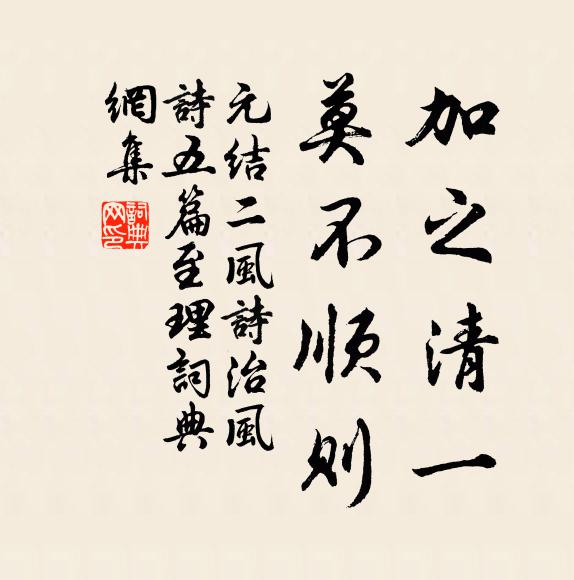 加之清一
莫不順則
元结二風詩治風
詩五篇至理詞典
網集
詞典網印